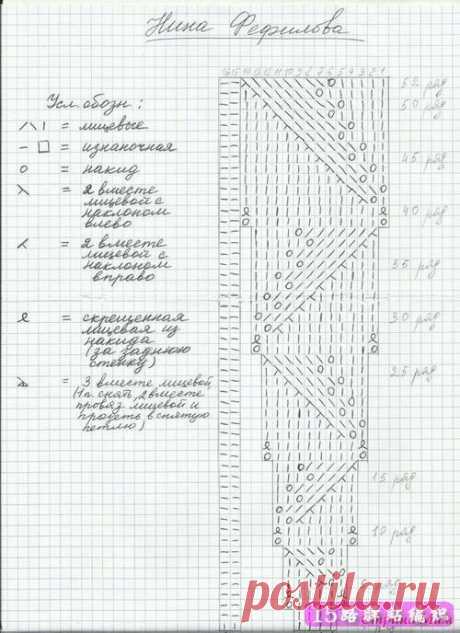 Нина Фефилова
Усл. обозн:
/ \ | = лицевые
— □ = изнаночная
о = накид
= 2 вместе
лицевой с
наклоном
влево
= 2 вместе
лицевой с
наклоном
вправо
= скрещенная
лицевая из
накида
(за заднюю
стенку)
= 3 вместе лицевой
(1 п. снять, 2 вместе
провяз лицевой и
продеть в снятую
петлю)
52 ряд
50 ряд
45 ряд
40 ряд
35 ряд
30 ряд
25 ряд
15 ряд
10 ряд
postila.ru